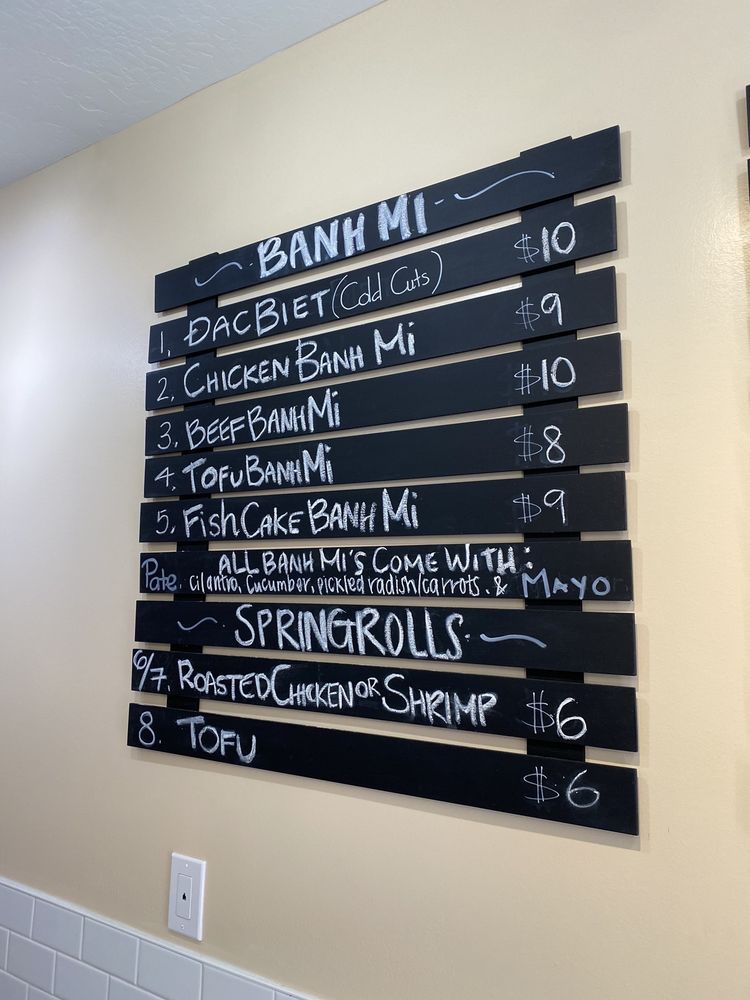 BANH MI
1. ĐAC BIET (Cold Cuts) $10
2. CHICKEN BANH Mi $9
3. BEEF BANH Mi $10
4. TOFU BANH Mi $8
5. Fish CAKE BANH Mi $9
ALL BANH Mi's COME WITH:
Pate. cilantro, Cucumber, pickled radish/carrots. & MAYO
SPRINGROLLS
6/7. ROASTED CHICKEN OR SHRIMP $6
8. TOFU $6